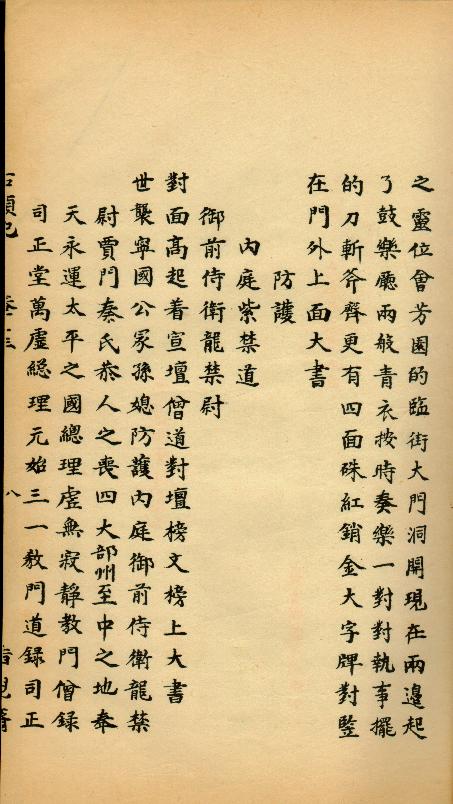 之靈位會芳園的臨街大門洞開現在兩邊起
了鼓樂廳兩班青衣按時奏樂一對對執事擺
的刀斬斧齊更有四面硃紅銷金大字牌對竪
在門外上面大書
防護
內庭紫禁道
御前侍衛龍禁尉
對面高起着宣壇僧道對壇榜文榜上大書
世襲寧國公冢孫媳防護內庭御前侍衛龍禁
尉賈門秦氏恭人之喪四大部州至中之地奉
天永運太平之國總理虛無寂靜教門僧録
司正堂萬虛總理元始三一教門道録司正